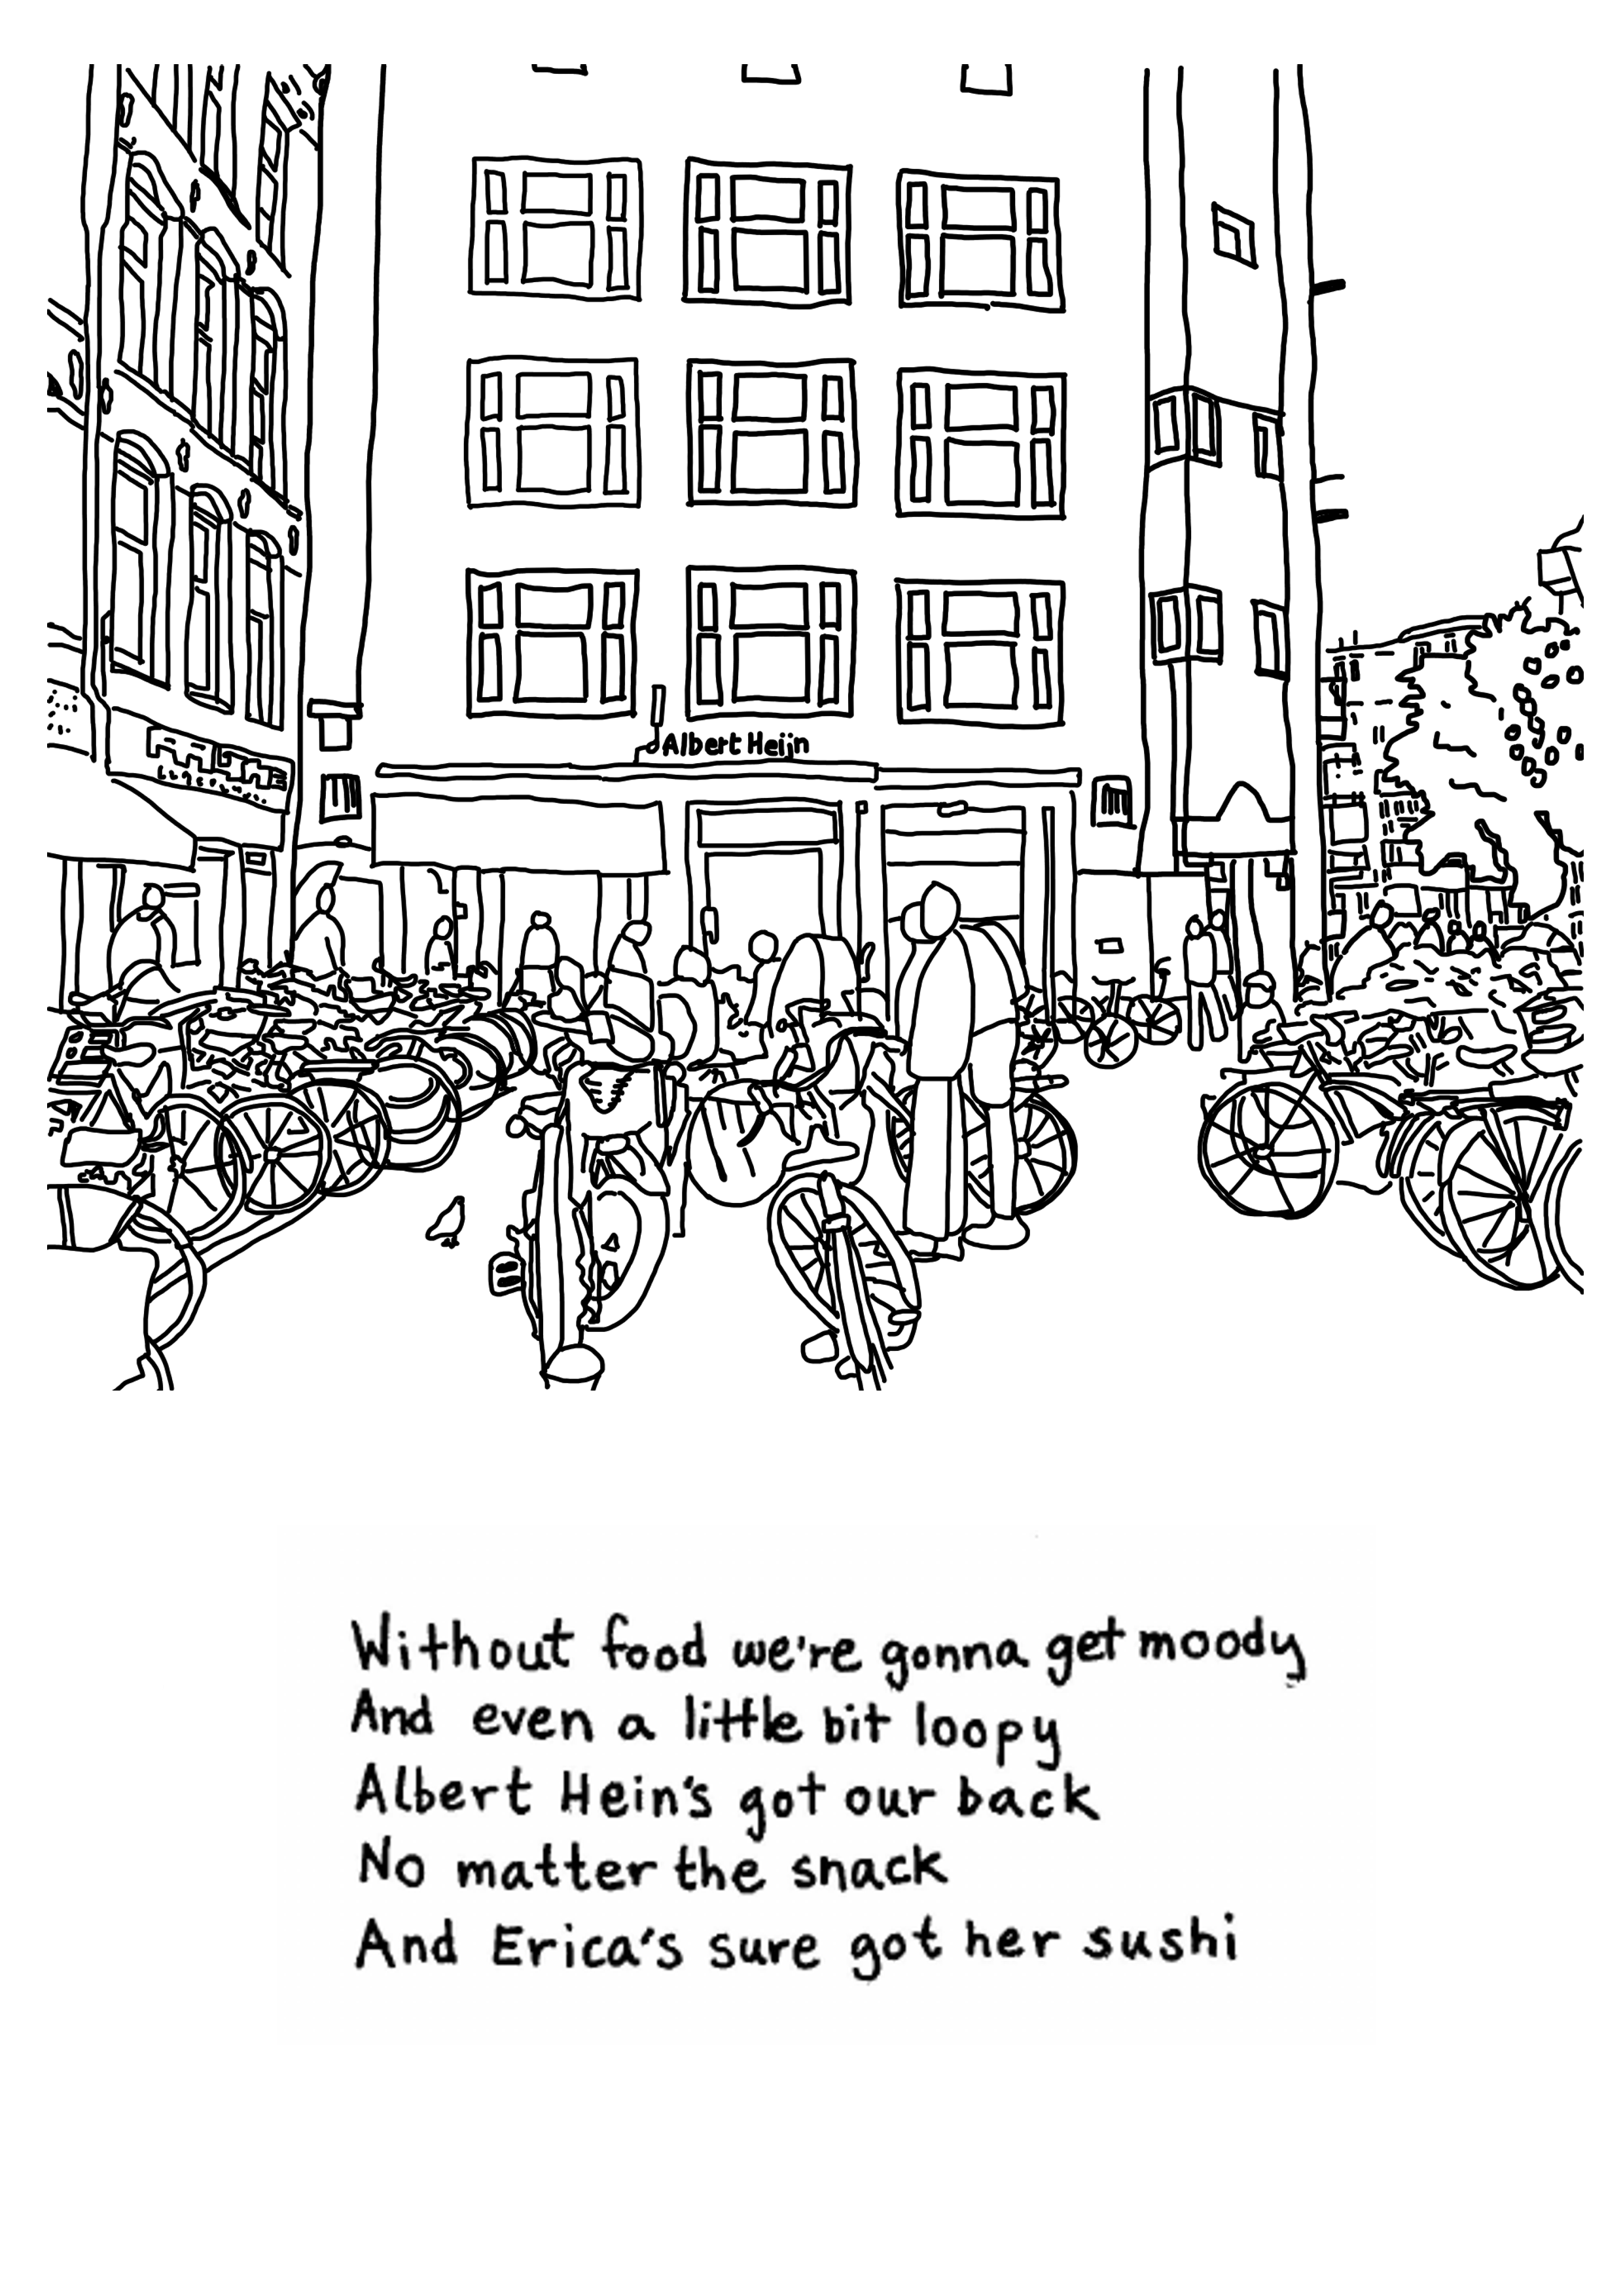 Albert Heijn
Without food we're gonna get moody
And even a little bit loopy
Albert Hein's got our back
No matter the snack
And Erica's sure got her sushi